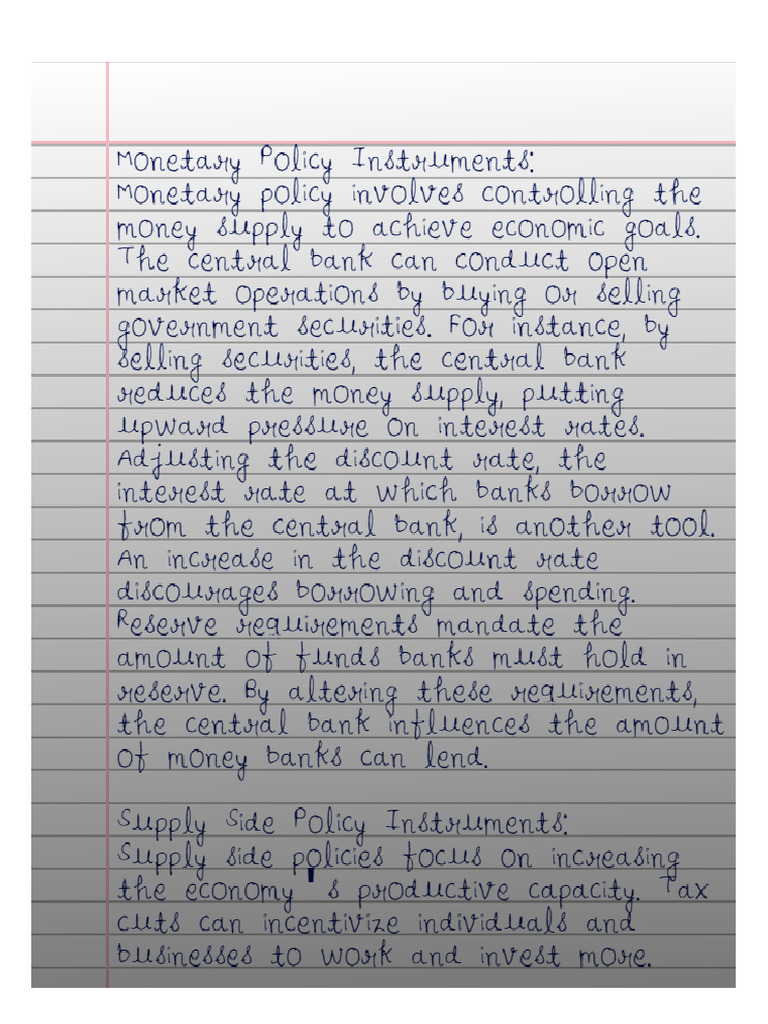 Monetary Policy Instruments:
Monetary policy involves controlling the
money supply to achieve economic goals.
The central bank can conduct open
market operations by buying or selling
government securities. For instance, by
selling securities, the central bank
reduces the money supply, putting
upward pressure on interest rates.
Adjusting the discount rate, the
interest rate at which banks borrow
from the central bank, is another tool.
An increase in the discount rate
discourages borrowing and spending.
Reserve requirements mandate the
amount of funds banks must hold in
reserve. By altering these requirements,
the central bank influences the amount
of money banks can lend.

Supply Side Policy Instruments:
Supply side policies focus on increasing
the economy's productive capacity. Tax
cuts can incentivize individuals and
businesses to work and invest more.